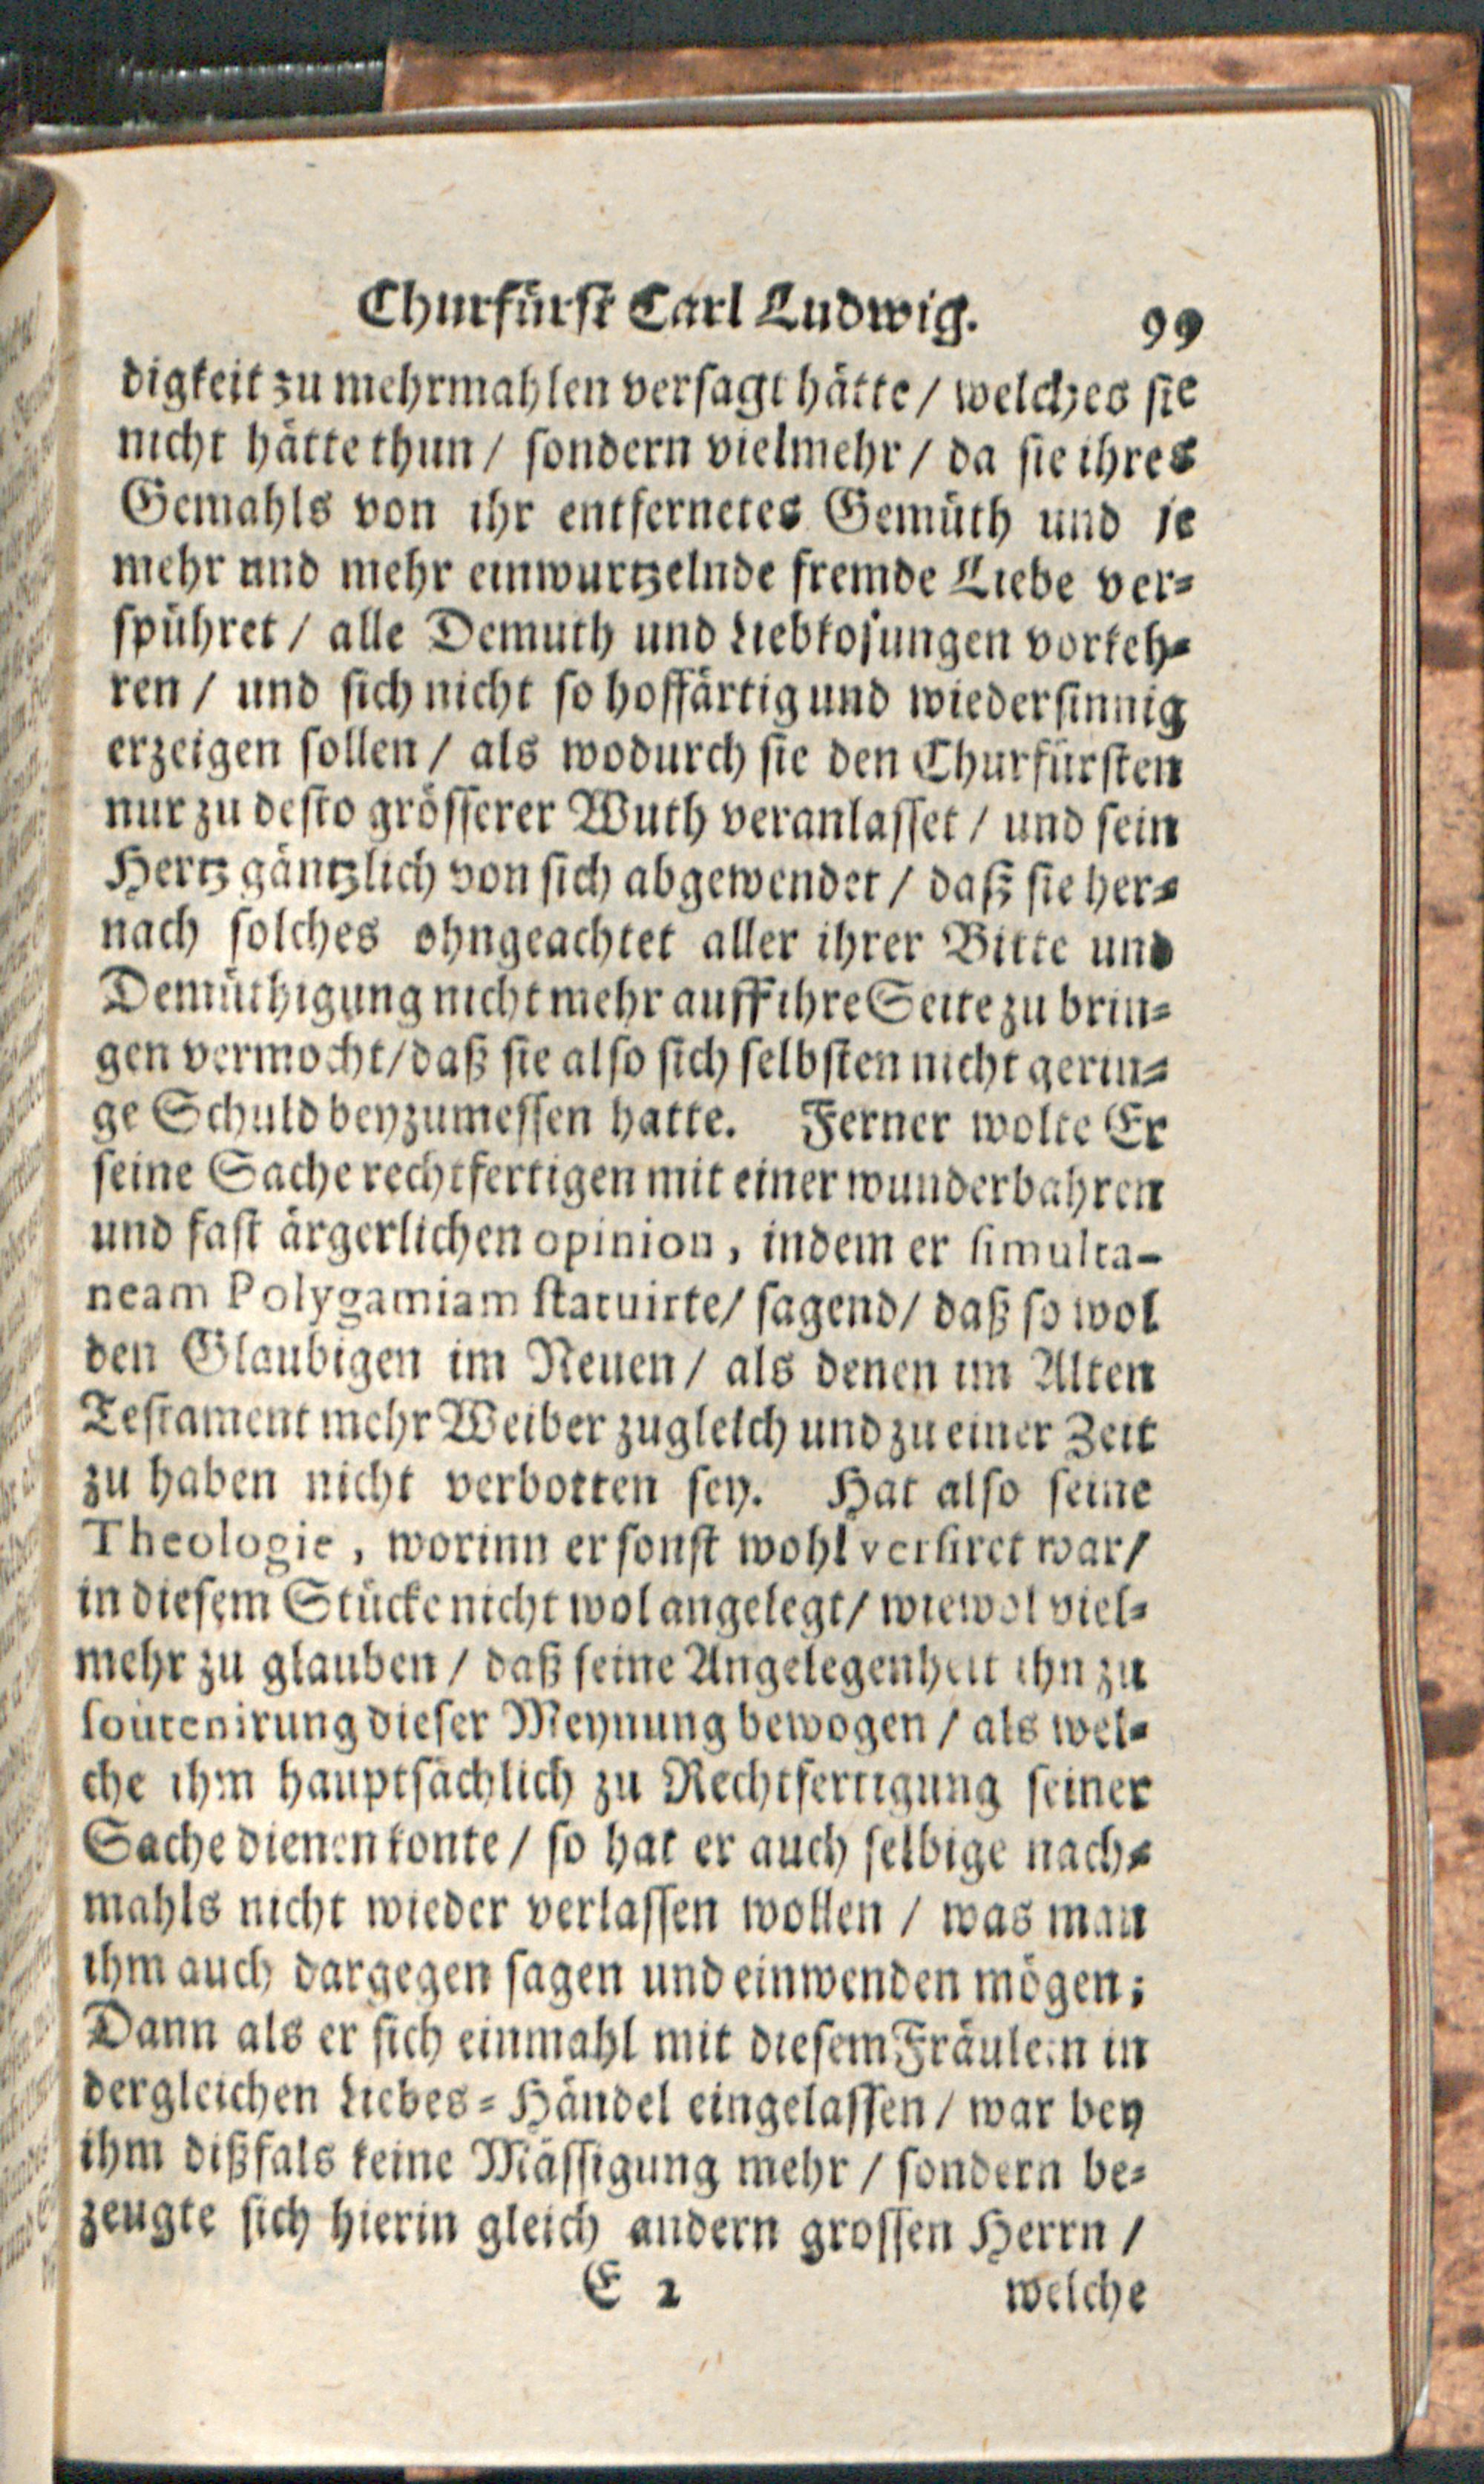 Churfürst Carl Ludwig. 99
digkeit zu mehrmahlen versagt hätte / welches sie
nicht hätte thun / sondern vielmehr / da sie ihres
Gemahls von ihr entfernetes Gemüth und je
mehr und mehr einwurtzelnde fremde Liebe ver⸗
spühret / alle Demuth und Liebkosungen vorkeh⸗
ren / und sich nicht so hoffärtig und wiedersinnig
erzeigen sollen / als wodurch sie den Churfürsten
nur zu desto grösserer Wuth veranlasset / und sein
Hertz gäntzlich von sich abgewendet / daß sie her⸗
nach solches ohngeachtet aller ihrer Bitte und
Demüthigung nicht mehr auff ihre Seite zu brin⸗
gen vermocht / daß sie also sich selbsten nicht gerin⸗
ge Schuld beyzumessen hatte. Ferner wolte Er
seine Sache rechtfertigen mit einer wunderbahren
und fast ärgerlichen opinion, indem er simulta-
neam Polygamiam statuirte / sagend / daß so wol
den Glaubigen im Neuen / als denen im Alten
Testament mehr Weiber zugleich und zu einer Zeit
zu haben nicht verbotten sey. Hat also seine
Theologie, worinn er sonst wohl versiret war /
in diesem Stücke nicht wol angelegt / wiewol viel⸗
mehr zu glauben / daß seine Angelegenheit ihn zu
soutenirung dieser Meynung bewogen / als wel⸗
che ihm hauptsächlich zu Rechtfertigung seiner
Sache dienen konte / so hat er auch selbige nach⸗
mahls nicht wieder verlassen wollen / was man
ihm auch dargegen sagen und einwenden mögen;
Dann als er sich einmahl mit diesem Fräulein in
dergleichen Liebes⸗Händel eingelassen / war bey
ihm dißfals keine Mässigung mehr / sondern be⸗
zeugte sich hierin gleich andern grossen Herrn /
E 2 welche